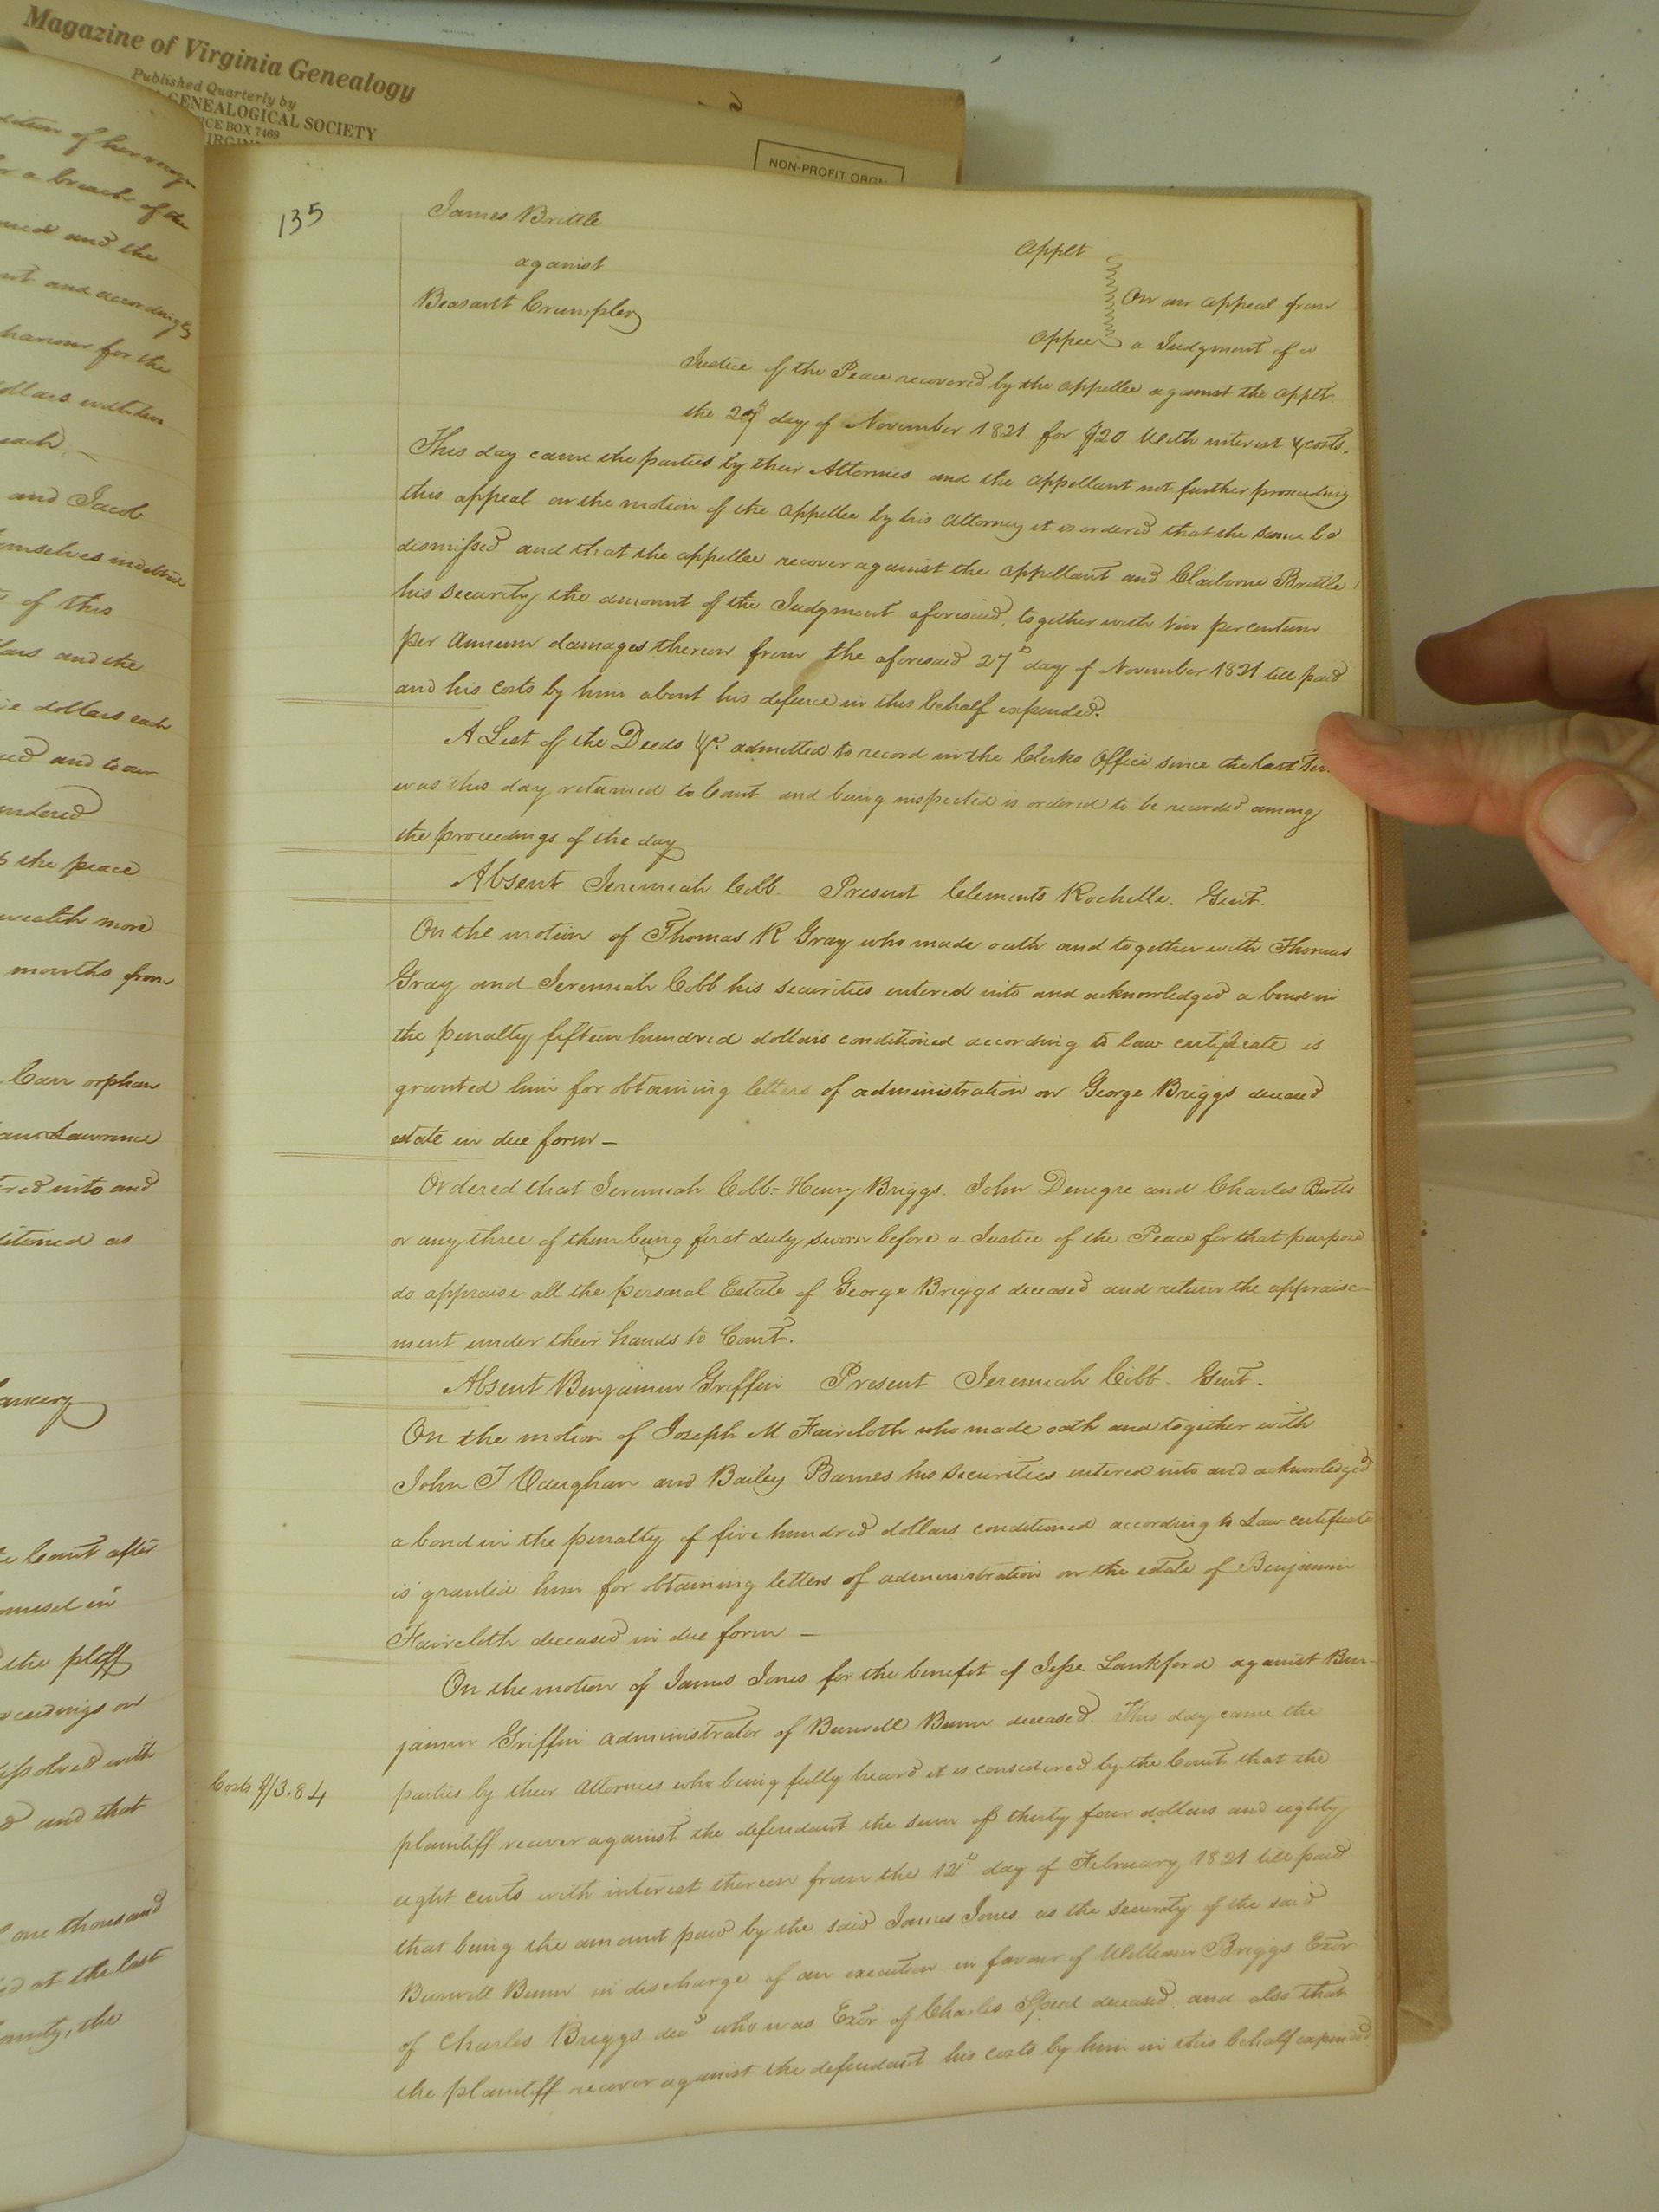 Magazine of Virginia Genealogy
Published Quarterly by
GENEALOGICAL SOCIETY
BOX 7469
NON-PROFIT ORGN
of her
r a breach of the
and the
and accordingly
for the
each
and Jacob
themselves indebted
of this
and the
dollars each
and to our
the peace
more
months from
Carr orphan
Lawrance
into and
as
Court after
in
the pltff
on
with
and that
one thousand
at the last
the
135
James Brittle Applt
against On an appeal from
Beasant Crumpler Appee a Judgment of a
Justice of the Peace recovered by the appellee against the applt
the 27th day of November 1821 for $20 With interest & costs.
This day came the parties by their Attornies and the appellant not further prosecuting
this appeal on the motion of the appellee by his attorney it is ordered that the same be
dismissed and that the appellee recover against the appellant and Claiborne Brittle
his security, the amount of the Judgment aforesaid, together with ten per centum
per Annum damages thereon from the aforesaid 27th day of November 1821 till paid
and his costs by him about his defence in this behalf expended.
A List of the Deeds &c. admitted to record in the Clerks Office since the last
was this day returned to Court and being inspected is ordered to be recorded among
the proceedings of the day
Absent Jeremiah Cobb. Present Clements Rochelle. Gent.
On the motion of Thomas R Gray who made oath and together with Thomas
Gray and Jeremiah Cobb his securities entered into and acknowledged a bond in
the penalty fifteen hundred dollars conditioned according to law certificate is
granted him for obtaining letters of administration on George Briggs deceased
estate in due form –
Ordered that Jeremiah Cobb - Henry Briggs. John Denegre and Charles Butts
or any three of them being first duly sworn before a Justice of the Peace for that purpose
do appraise all the personal Estate of George Briggs deceased and return the appraise-
ment under their hands to Court.
Absent Benjamin Griffin Present Jeremiah Cobb - Gent -
On the motion of Joseph M Faircloth who made oath and together with
John T Vaughan and Bailey Barnes his securities entered into and acknowledged
a bond in the penalty of five hundred dollars conditioned according to Law certificate
is granted him for obtaining letters of administration on the estate of Benjamin
Faircloth deceased in due form –
On the motion of James Jones for the benefit of Jesse Lankford against Ben-
jamin Griffin administrator of Burwell Bunn deceased. This day came the
Costs $3.84 parties by their attornies who being fully heard it is considered by the Court that the
plaintiff recover against the defendant the sum of thirty four dollars and eighty
eight cents with interest thereon from the 12th day of February 1821 till paid
that being the amount paid by the said James Jones as the security of the said
Burwell Bunn in discharge of an execution in favour of William Briggs Exor
of Charles Briggs decd who was Exor of Charles Speed deceased, and also that
the plaintiff recover against the defendant his costs by him in this behalf expended